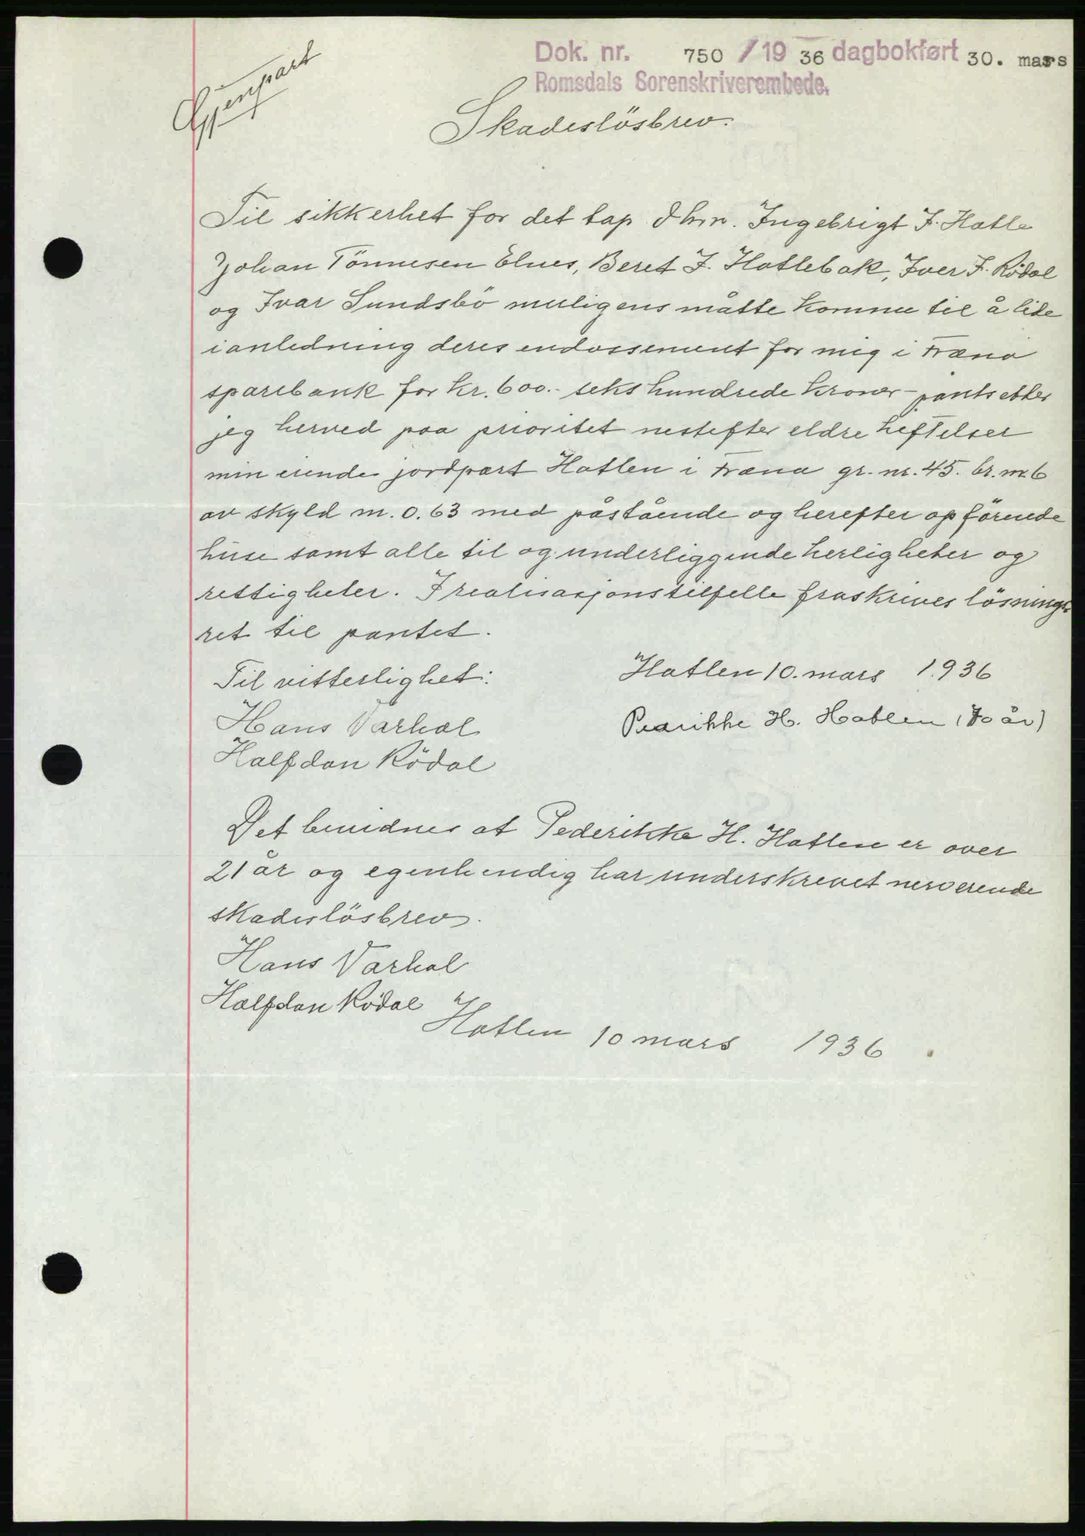 Dok. nr. 750 / 19 36 dagbokført 30. mars
Romsdals Sorenskriverembede.
Gjenpart
Skadeslösbrev.
Til sikkerhet for det tap d'hrr. Ingebrigt J. Hatle
Johan Tönnesen Elnes, Beret J. Hatlebak, Iver J. Rödal
og Ivar Sundsbö muligens måtte komme til å lide
i anledning deres endossement for mig i Fræna
sparebank for kr. 600.- seks hundrede kroner - pantsetter
jeg herved paa prioritet nestefter eldre heftelser
min eiende jordpart Hatlen i Fræna gr. nr. 45. br. nr. 6
av skyld m. 0.63 med påstående og herefter opförende
huse samt alle til og underliggende herligheter og
rettigheter. I realisasjonstilfelle fraskrives lösnings
ret til pantet.
Til vitterlighet:
Hatlen 10. mars 1.936
Hans Varhol
Halfdan Rödal
H. Hatlen (70 år)
Det bevidnes at Pederikke H. Hatlen er over
21 år og egenhendig har underskrevet nerværende
skadeslösbrev.
Hans Varhol
Halfdan Rödal
Hatlen 10 mars 1936